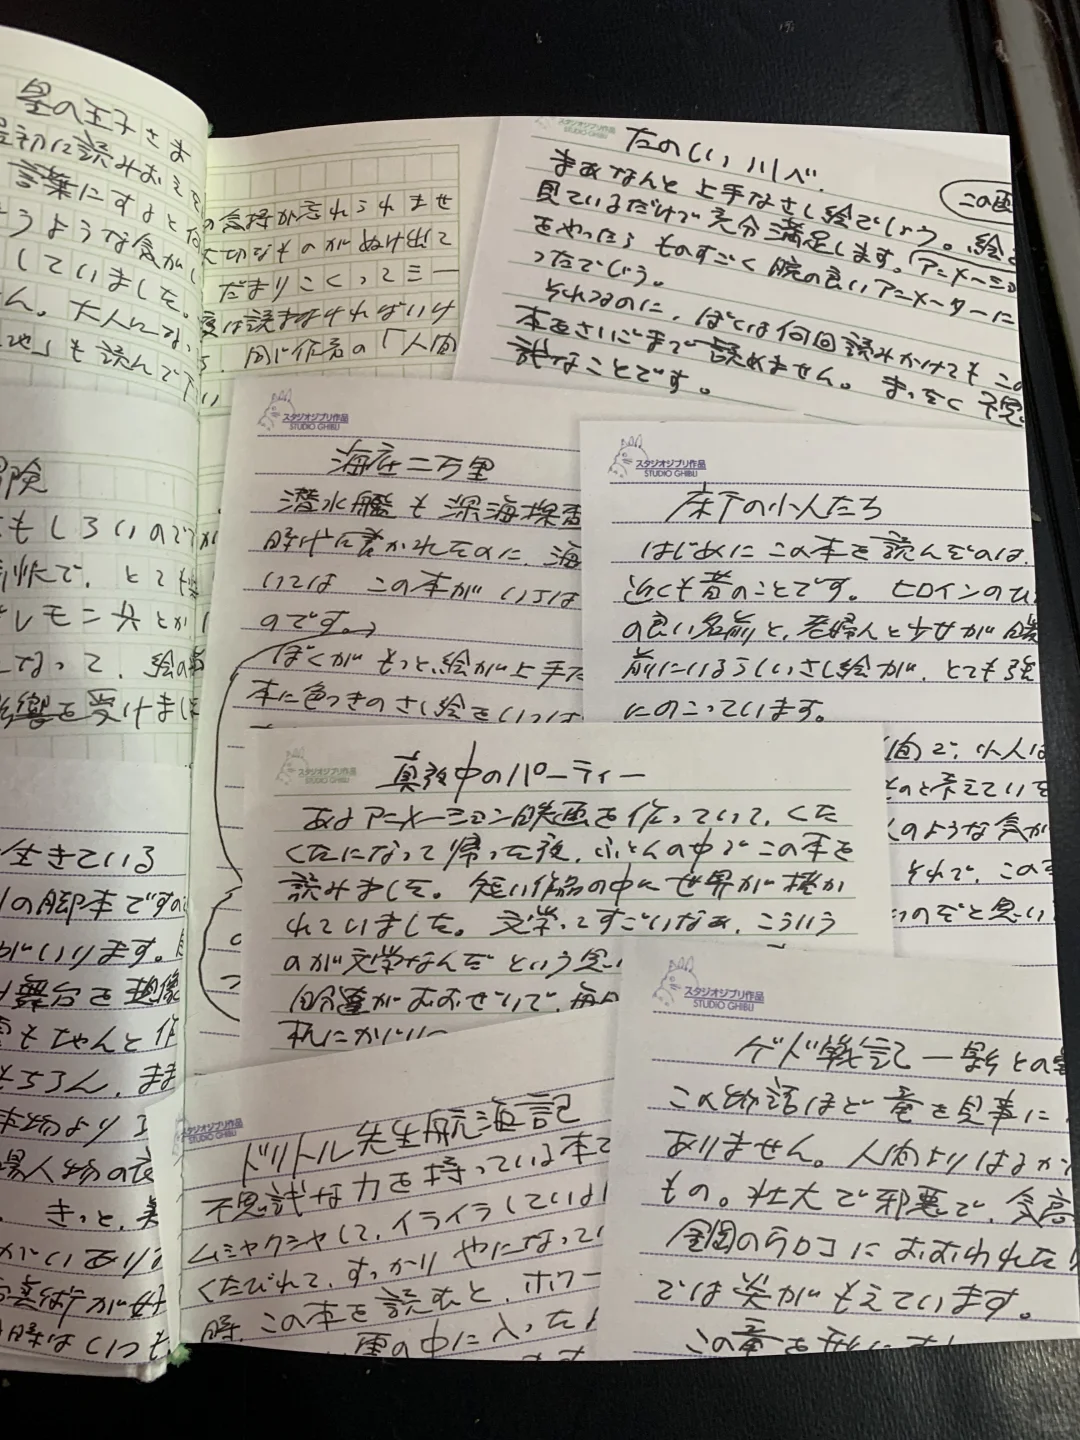 星の王子さま
最初に読みおえた
言葉にすると何
うような気がし
していました。
ん。大人にな
も読んで下
の気持が忘れられませ
大切なものがぬけ出て
だまりこくって三一
度は読まなければいけ
同じ作者の「人間
い
冒険
もしろいので
とても
レモン水とか
なって、絵の
影響を受けまし
生きている
の脚本ですの
がいります。
舞台を想像
もちゃんと作
もちろん、まま
本物より
場人物の
きっと、美
がいあり
はいつも
スタジオジブリ作品
STUDIO GHIBLI
たのしい川べ
まあなんと上手なさし絵でしょう。絵を
見ているだけで充分満足します。アニメーショ
をやったら ものすごく腕の良いアニメーターに
ったでしょう。
それなのに、ぼくは何回読みかけてもこの
本をさいごまで読めません。まったく不思
議なことです。
この画
スタジオジブリ作品
STUDIO GHIBLI
海底二万里
潜水艦も深海探査
時代に書かれたのに、海
いては この本がいちば
のです。
ぼくが もっと、絵が上手だ
本に色つきのさし絵をいっぱ
スタジオジブリ作品
STUDIO GHIBLI
床下の小人たち
はじめにこの本を読んだのは、
近くも昔のことです。ヒロインのひ
の良い名前と、老婦人と少女が暖
前にいるらしいさし絵が、とても強
にのこっています。
で、小人は
のと考えていた
のような気が
それで、この
のだと思い
スタジオジブリ作品
STUDIO GHIBLI
真夜中のパーティー
あるアニメーション映画を作っていて、くた
くたになって帰った夜、ふとんの中でこの本を
読みました。短い作品の中に世界が描か
れていました。文学ってすごいなぁ、こういう
のが文学なんだ という思い
明達がおおぜいで、毎日
机にかじりつ
スタジオジブリ作品
STUDIO GHIBLI
ドリトル先生航海記
不思議な力を持っている本で
ムシャクシャして、イライラしていたり
くたびれて、すっかり やになってい
時、この本を読むと、ホワー
雲の中に入った
スタジオジブリ作品
STUDIO GHIBLI
ゲド戦記 ー影との
この物語ほど 竜を見事に
ありません。人間よりはるか
もの。壮大で邪悪で、気高
金銅のウロコにおおわれた
では炎がもえています。
この竜を